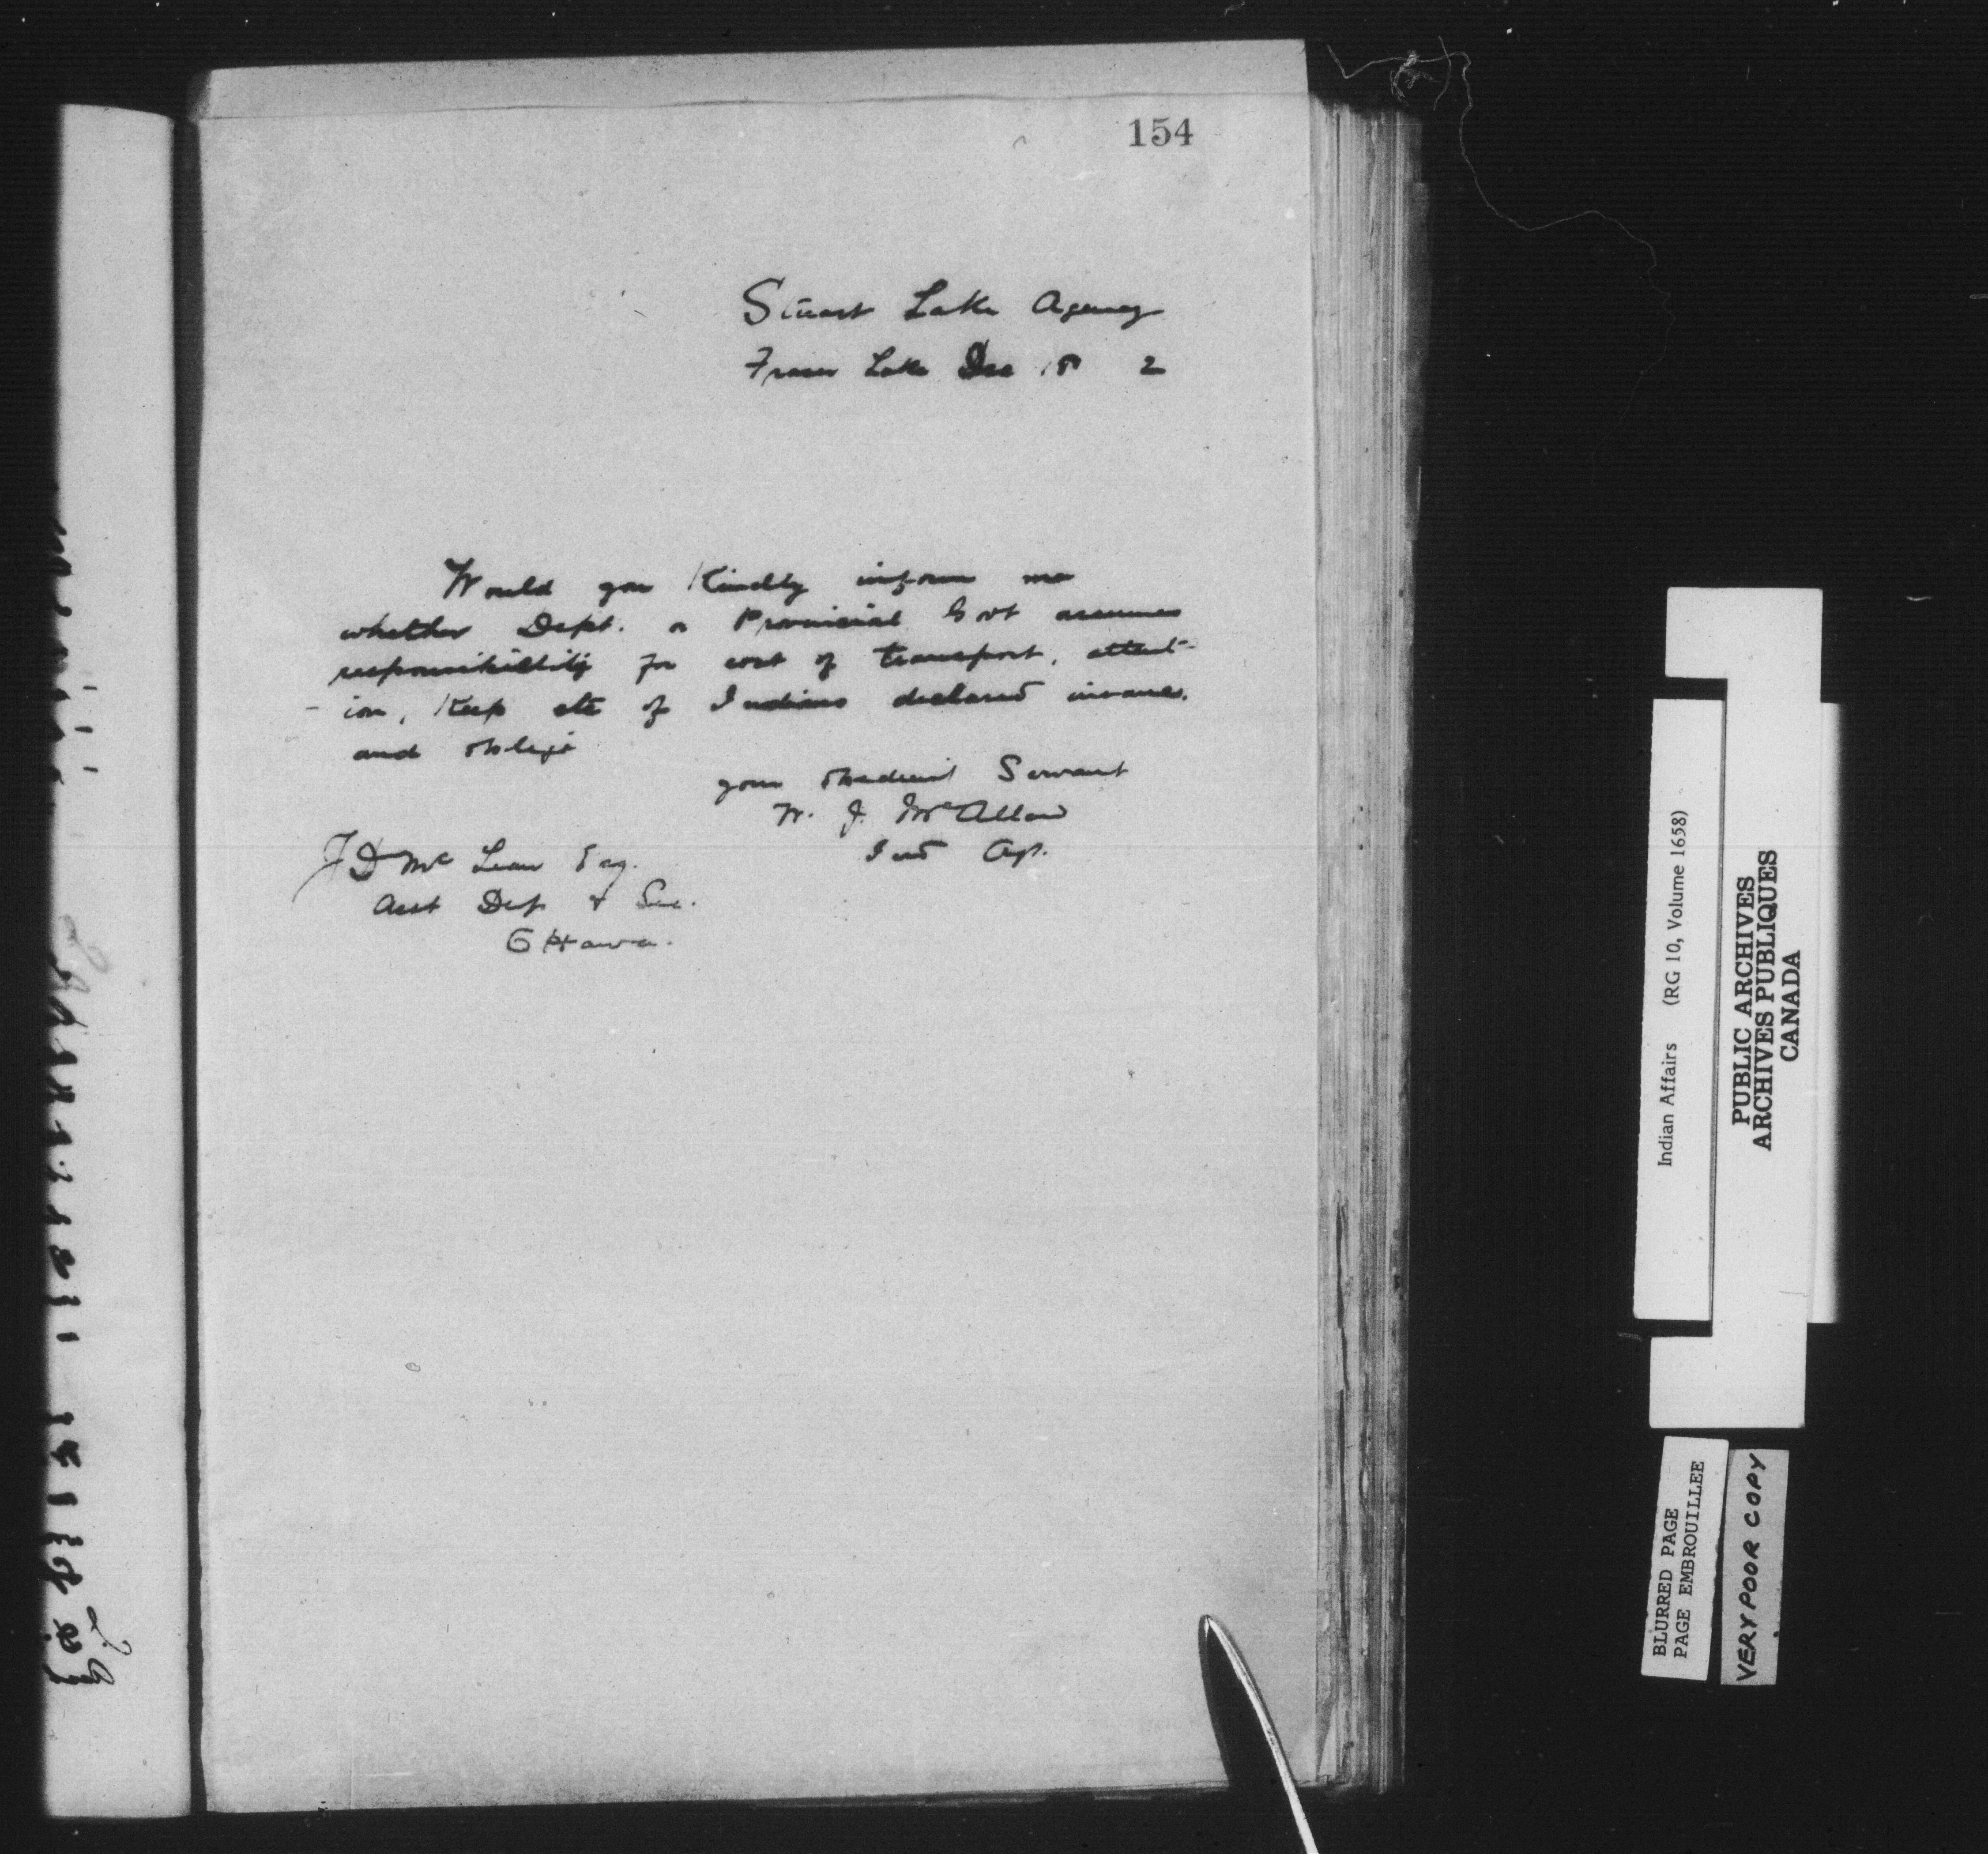 154
Stuart Lake Agency
Fraser Lake Dec 18 2
Would you Kindly inform me
whether Dept. or Provincial Govt assumes
responsibility for cost of transport, attent-
-ion, Keep etc of Indians declared insane.
and oblige
your obedient Servant
W. J. McAllan
Ind Agt.
J D McLean Esq.
Asst Dep & Sec.
Ottawa.
Indian Affairs (RG 10, Volume 1658)
PUBLIC ARCHIVES
ARCHIVES PUBLIQUES
CANADA
BLURRED PAGE
PAGE EMBROUILLEE
VERY POOR COPY